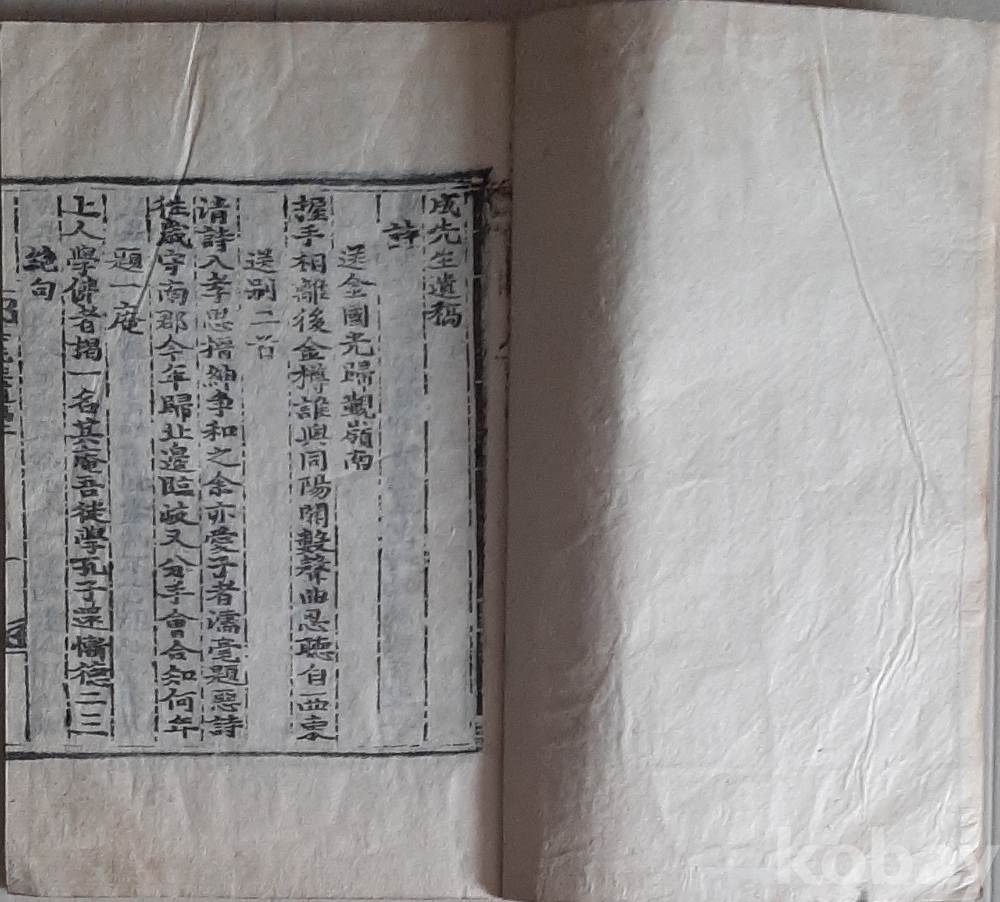 成先生遺稿
詩
送金國光歸覲嶺南
握手相離後金樽誰與同陽關數聲曲忍聽自西東
送別二首
清詩入孝思搢紳爭和之余亦愛子者濡毫題惡詩
往歲守南郡今年歸北邊臨歧又分手會合知何年
題一庵
上人學佛者揭一名其庵吾徒學孔子還慚德二三
絶句
kobay